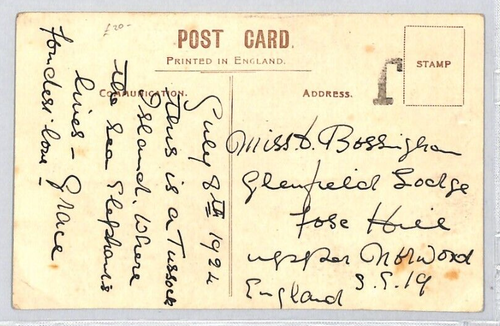 £20-
POST CARD.
PRINTED IN ENGLAND.
COMMUNICATION.
ADDRESS.
STAMP
July 8th 1924
This is a Tussock
Island. Where
the Sea Elephants
lives -
fondest love Grace
Miss D. Bossingham
Glenfield Lodge
Fose Hill
upper Norwood
S.E. 19
England